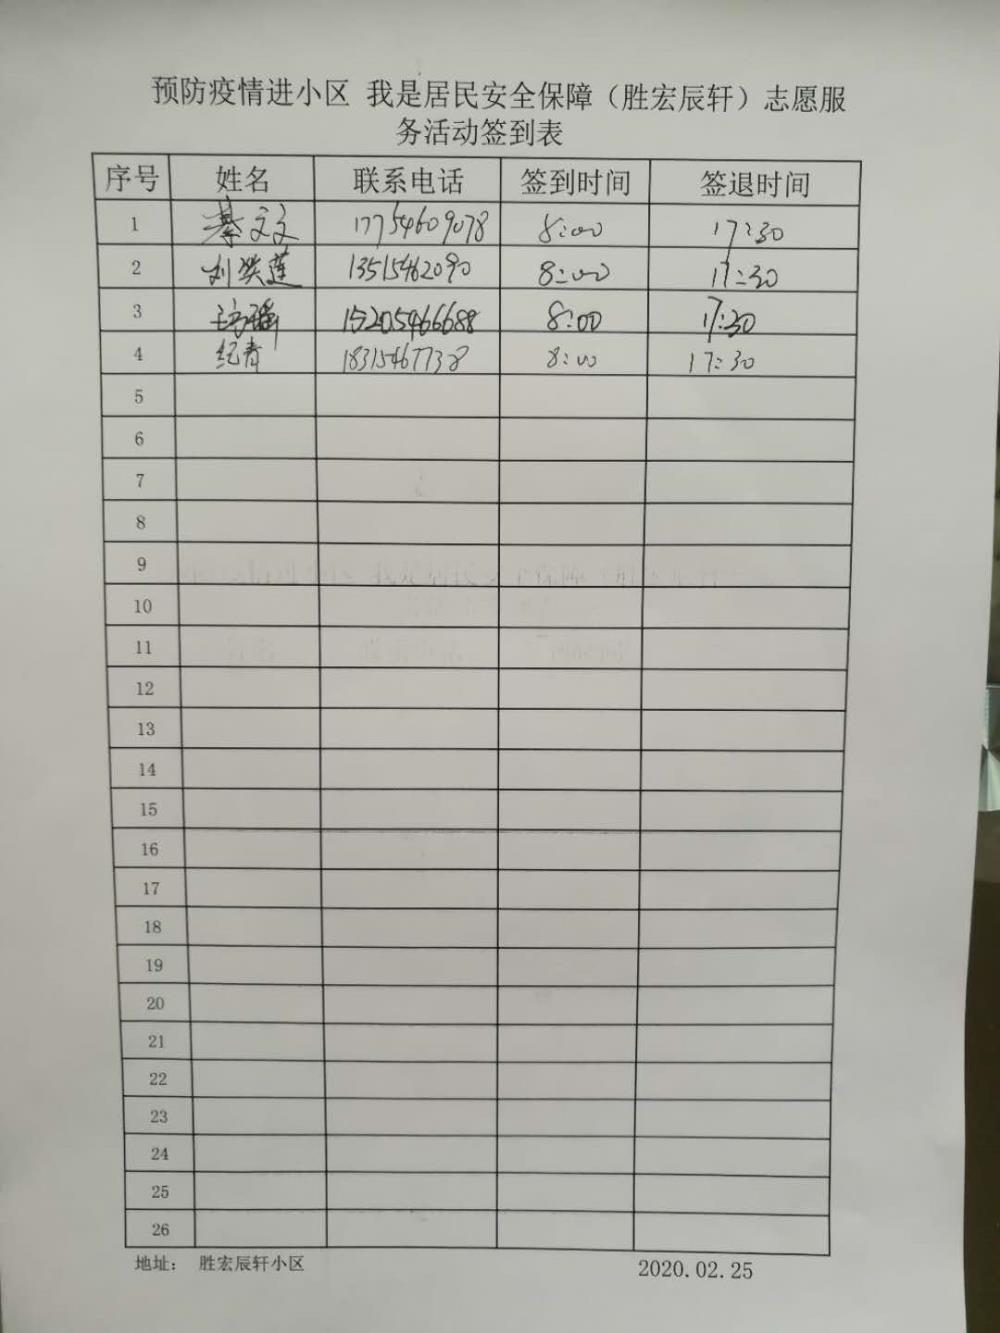 预防疫情进小区 我是居民安全保障（胜宏辰轩）志愿服
务活动签到表
序号 姓名 联系电话 签到时间 签退时间
1 綦文文 17754609078 8:00 17:30
2 刘洪莲 13515462090 8:00 17:30
3 15205466688 8:00 17:30
4 纪青 18315467738 8:00 17:30
5
6
7
8
9
10
11
12
13
14
15
16
17
18
19
20
21
22
23
24
25
26
地址： 胜宏辰轩小区 2020.02.25